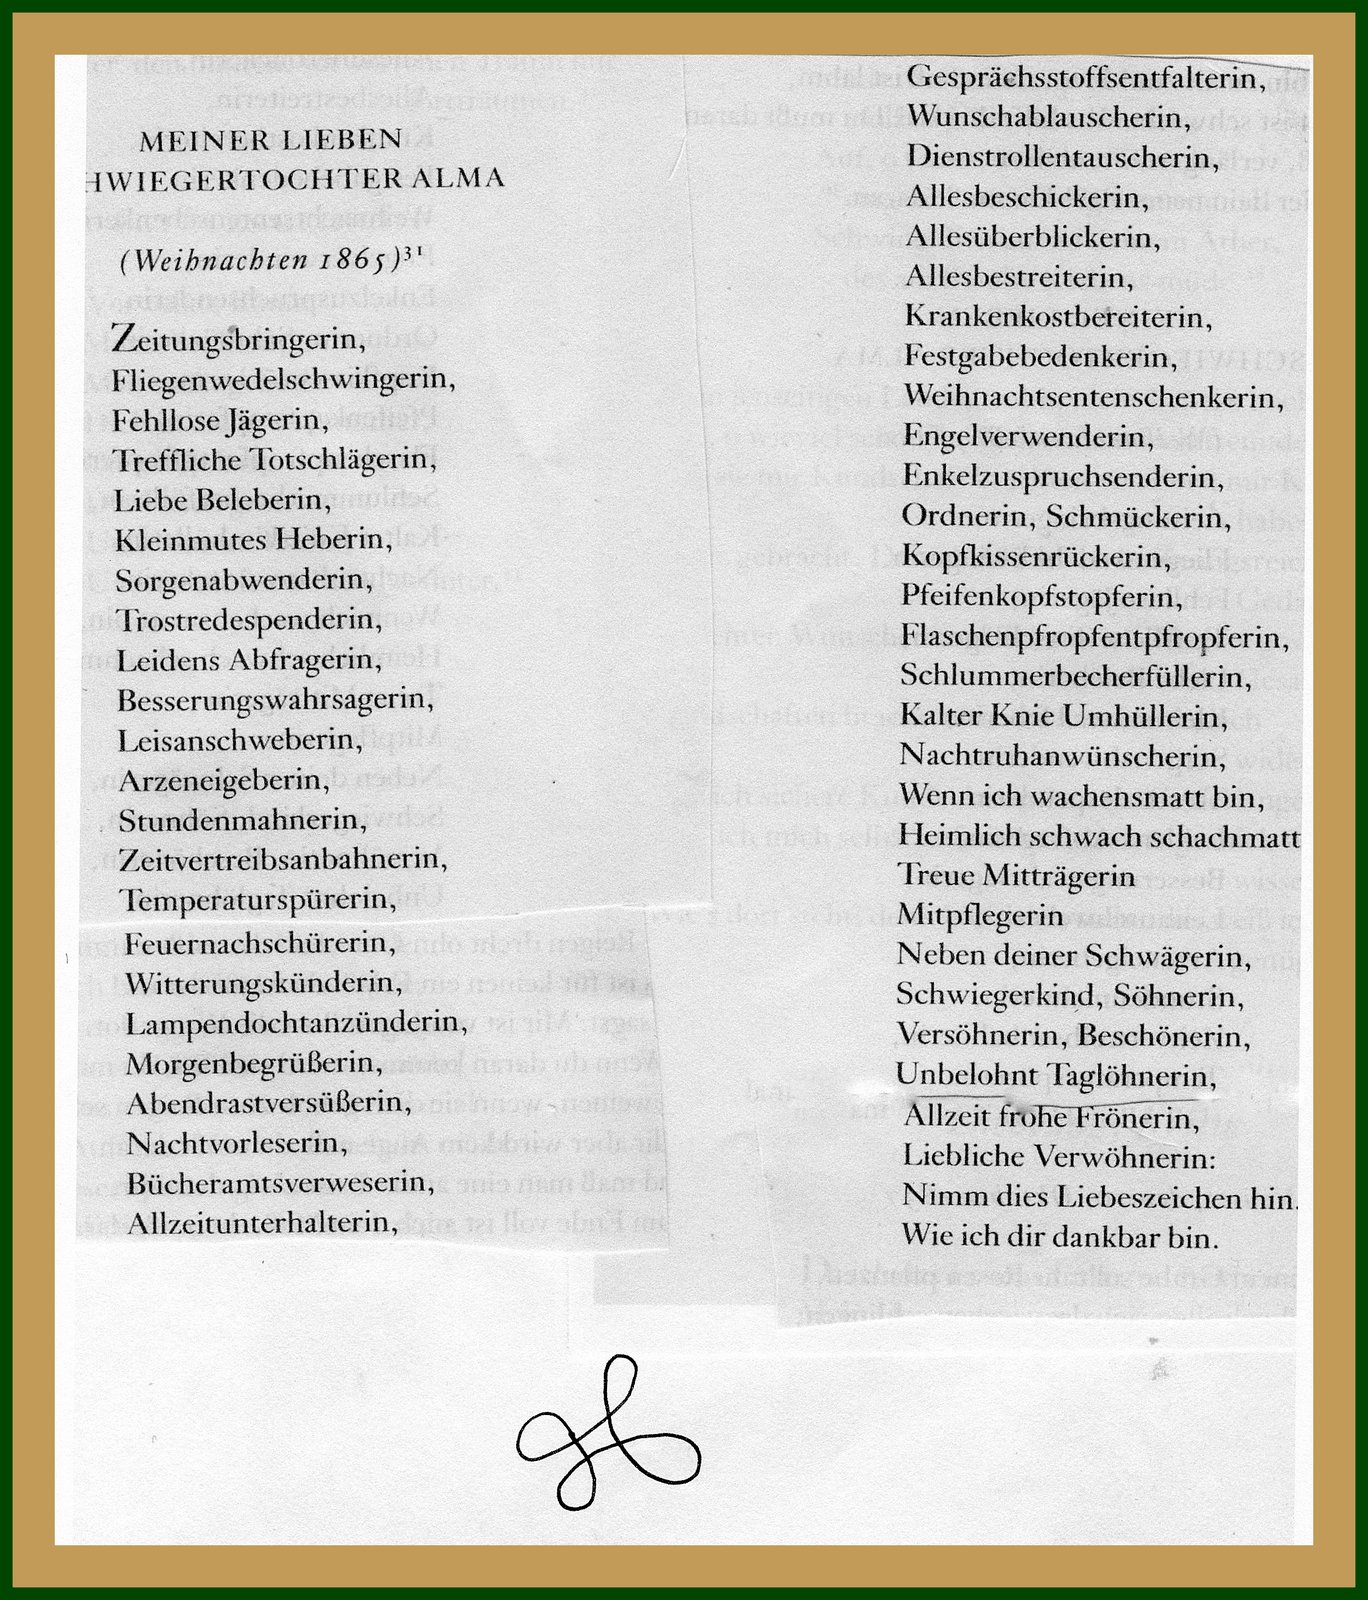 MEINER LIEBEN
HWIEGERTOCHTER ALMA
(Weihnachten 1865)³¹
Zeitungsbringerin,
Fliegenwedelschwingerin,
Fehllose Jägerin,
Treffliche Totschlägerin,
Liebe Beleberin,
Kleinmutes Heberin,
Sorgenabwenderin,
Trostredespenderin,
Leidens Abfragerin,
Besserungswahrsagerin,
Leisanschweberin,
Arzeneigeberin,
Stundenmahnerin,
Zeitvertreibsanbahnerin,
Temperaturspürerin,
Feuernachschürerin,
Witterungskünderin,
Lampendochtanzünderin,
Morgenbegrüßerin,
Abendrastversüßerin,
Nachtvorleserin,
Bücheramtsverweserin,
Allzeitunterhalterin,
Gesprächsstoffsentfalterin,
Wunschablauscherin,
Dienstrollentauscherin,
Allesbeschickerin,
Allesüberblickerin,
Allesbestreiterin,
Krankenkostbereiterin,
Festgabebedenkerin,
Weihnachtsentenschenkerin,
Engelverwenderin,
Enkelzuspruchsenderin,
Ordnerin, Schmückerin,
Kopfkissenrückerin,
Pfeifenkopfstopferin,
Flaschenpfropfentpfropferin,
Schlummerbecherfüllerin,
Kalter Knie Umhüllerin,
Nachtruhanwünscherin,
Wenn ich wachensmatt bin,
Heimlich schwach schachmatt
Treue Mitträgerin
Mitpflegerin
Neben deiner Schwägerin,
Schwiegerkind, Söhnerin,
Versöhnerin, Beschönerin,
Unbelohnt Taglöhnerin,
Allzeit frohe Frönerin,
Liebliche Verwöhnerin:
Nimm dies Liebeszeichen hin.
Wie ich dir dankbar bin.